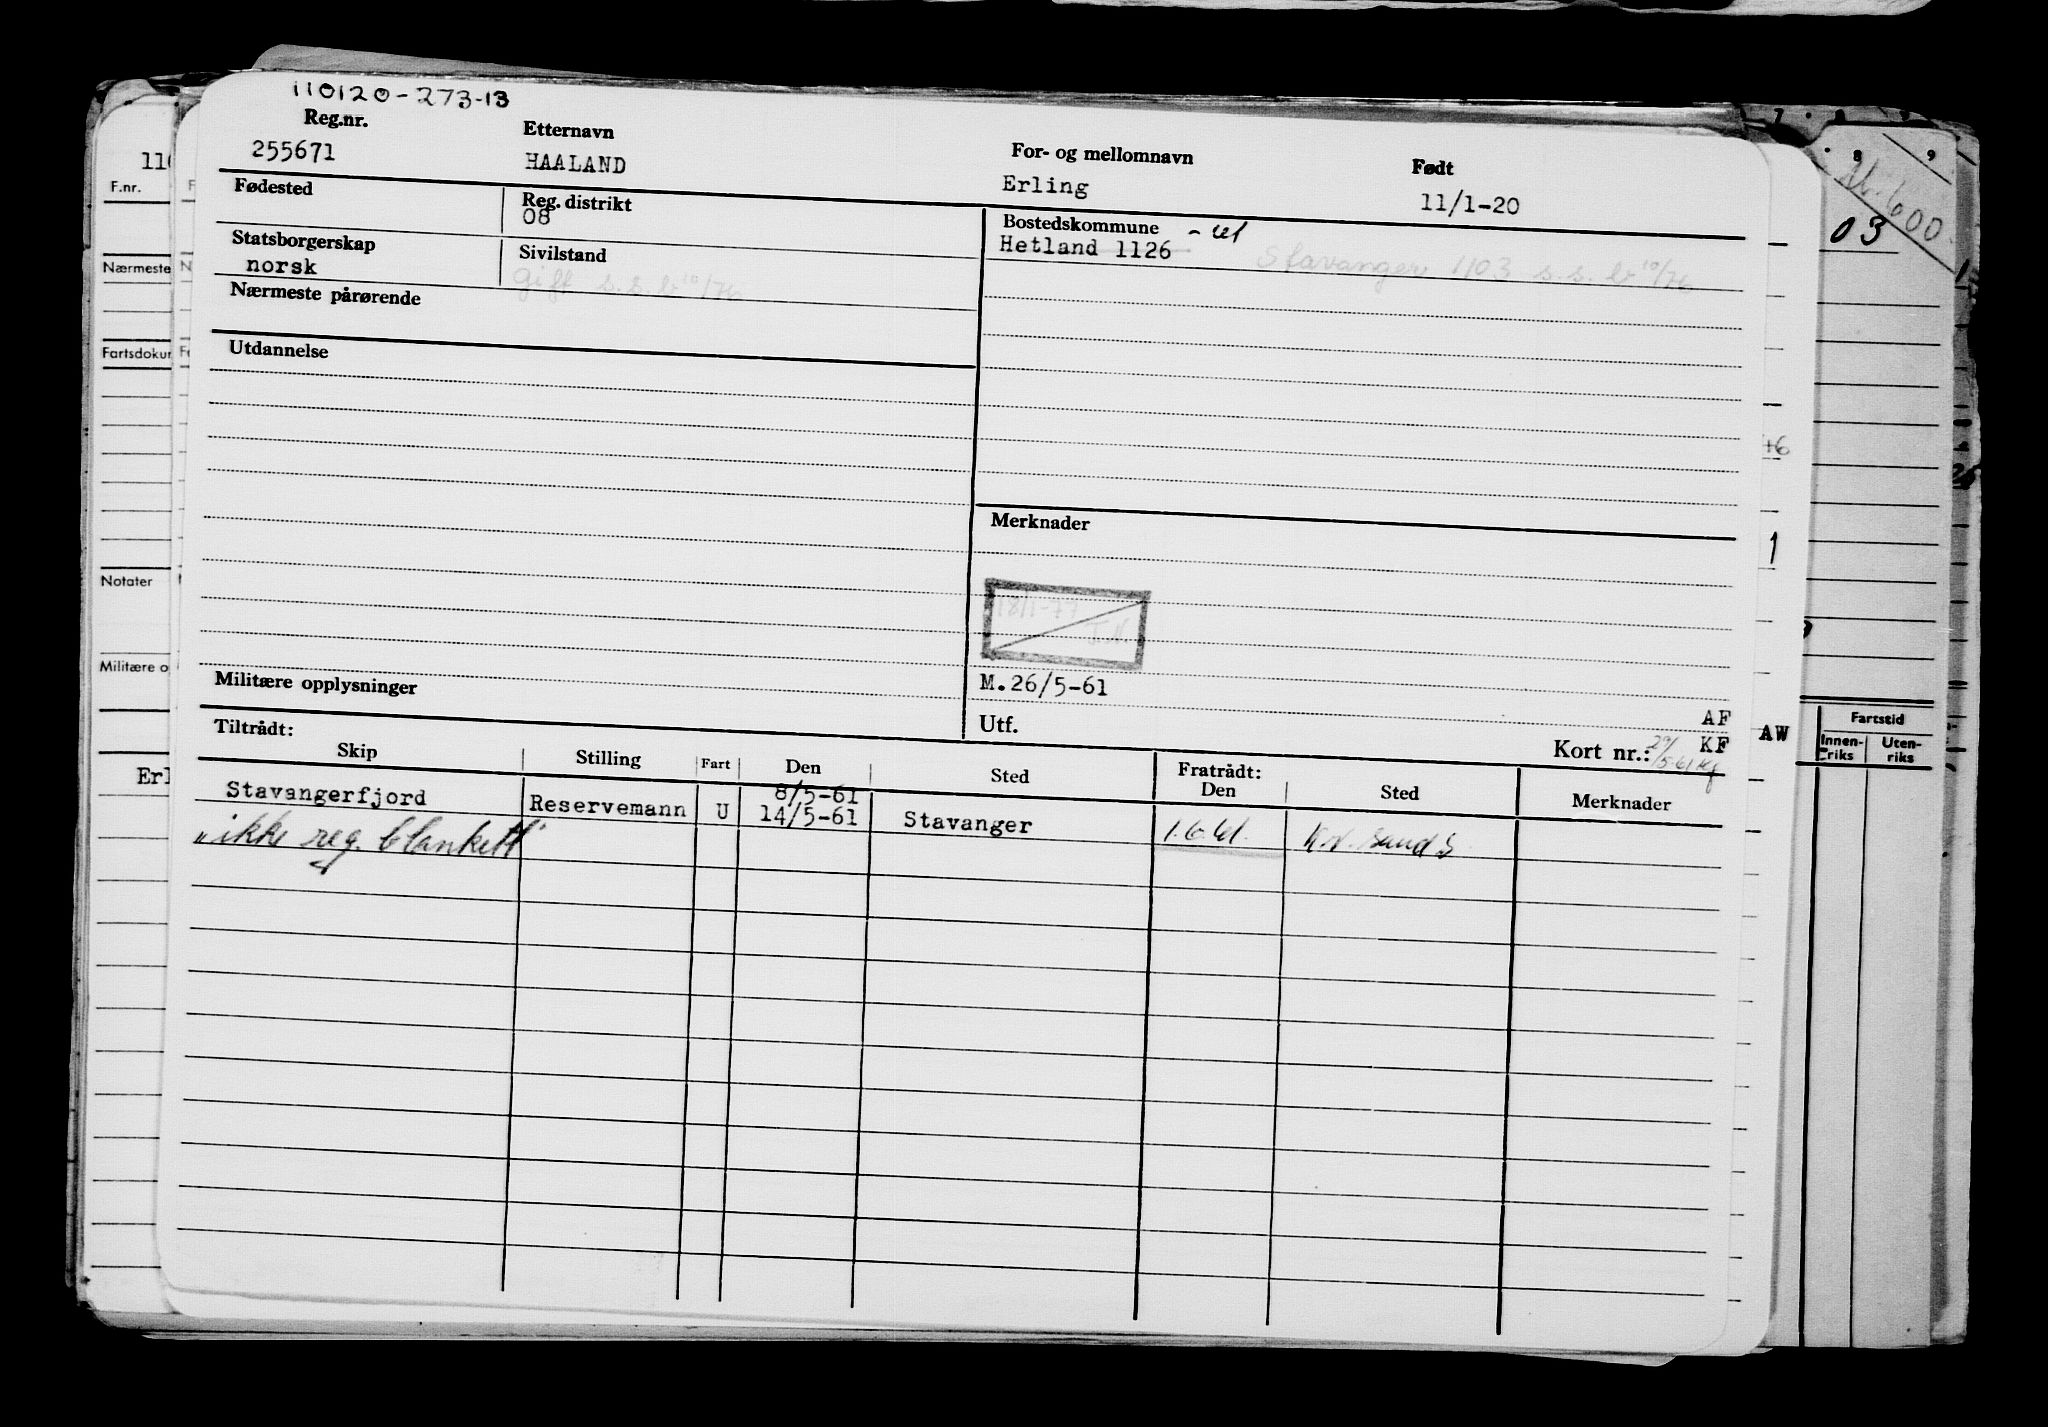 110120-273-13
Reg.nr. Etternavn For- og mellomnavn Født
255671 HAALAND Erling 11/1-20
Fødested Reg. distrikt Bostedskommune
08 Hetland 1126 Stavanger 1103 s.s. br 10/76
Statsborgerskap Sivilstand
norsk Gift s.s. br 10/76
Nærmeste pårørende
Utdannelse
Merknader
18/1-77
Militære opplysninger M.26/5-61
AF
Utf. KF
Tiltrådt: Kort nr.: 29/5-61 Kf
Skip Stilling Fart Den Sted Fratrådt: Den Sted Merknader
8/5-61
Stavangerfjord Reservemann U 14/5-61 Stavanger 1.6.61. Kr. sand S
"ikke reg. blankett"
110
F.nr.
Nærmeste
Fartsdokum
Notater
Militære o
Erl
8 9
600
03
+6
1
AW
Fartstid
Innen-riks Uten-riks